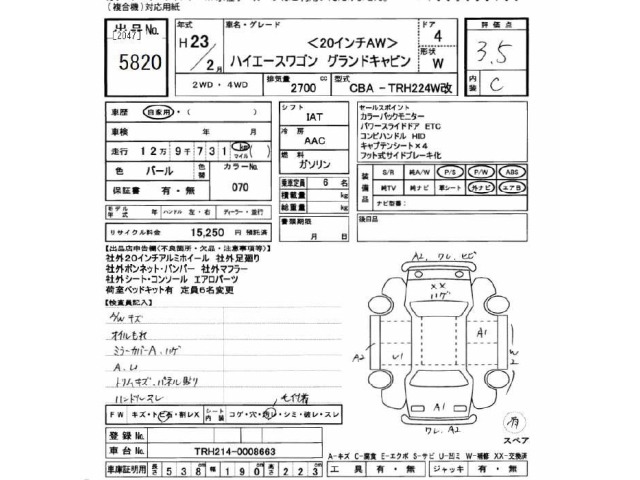 (複合機)対応用紙
出品No.
[2047]
5820
年式
H23/2月
車名・グレード
<20インチAW>
ハイエースワゴン グランドキャビン
ドア
4
形状
W
評価点
3.5
内装
C
2WD・4WD
排気量
2700 cc
型式
CBA-TRH224W改
車歴 自家用・( )
車検 年 月
走行 12万9千731 km マイル
色 パール 色替 カラーNo. 070
保証書 有・無
モデル年式 年 ハンドル 左・右 ディーラー・並行
リサイクル料金 15,250 円 預託済
シフト
IAT
冷房
AAC
燃料
ガソリン
乗車定員 6 名
積載量 kg
総重量 kg
書類期限
月 日
セールスポイント
カラーバックモニター
パワースライドドア ETC
コンビハンドル HID
キャプテンシート×4
フット式サイドブレーキ化
装備品
S/R 純A/W P/S P/W ABS
純TV 純ナビ 革シート 外ナビ エアB
ナビ型番:
後日品
【出品店申告欄(不良箇所・欠品・注意事項等)】
社外20インチアルミホイール 社外足廻り
社外ボンネット・バンパー 社外マフラー
社外シート・コンソール エアロパーツ
荷室ベッドキット有 定員6名変更
【検査員記入】
A/W キズ
オイルもれ
ミラーカバーA、ハゲ
A、U
トリムキズ、パネル貼り
ハンドルスレ
FW キズ・トビ石・割レX シート内装 コゲ・穴・汚レ・シミ・破レ・スレ
A2 ワレ、ヒビ
XX
ハゲ
A2
U1
A1
W2
A1
ワレ、A2
有
スペア
登録No.
車台No. TRH214-0008663
A-キズ C-腐食 E-エクボ S-サビ U-凹ミ W-補修 XX-交換済
車庫証明用 長さ 538 幅 190 高さ 223
工具 有・無 ジャッキ 有・無